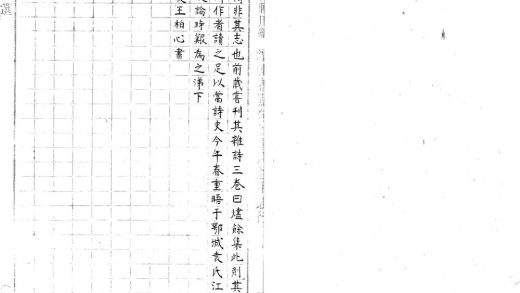 非其志也前歲嘗刊其雜詩三卷曰燼餘集此則其
作者讀之足以當詩史今年春重晤于鄂城袁氏江
論時艱為之涕下
王柏心書